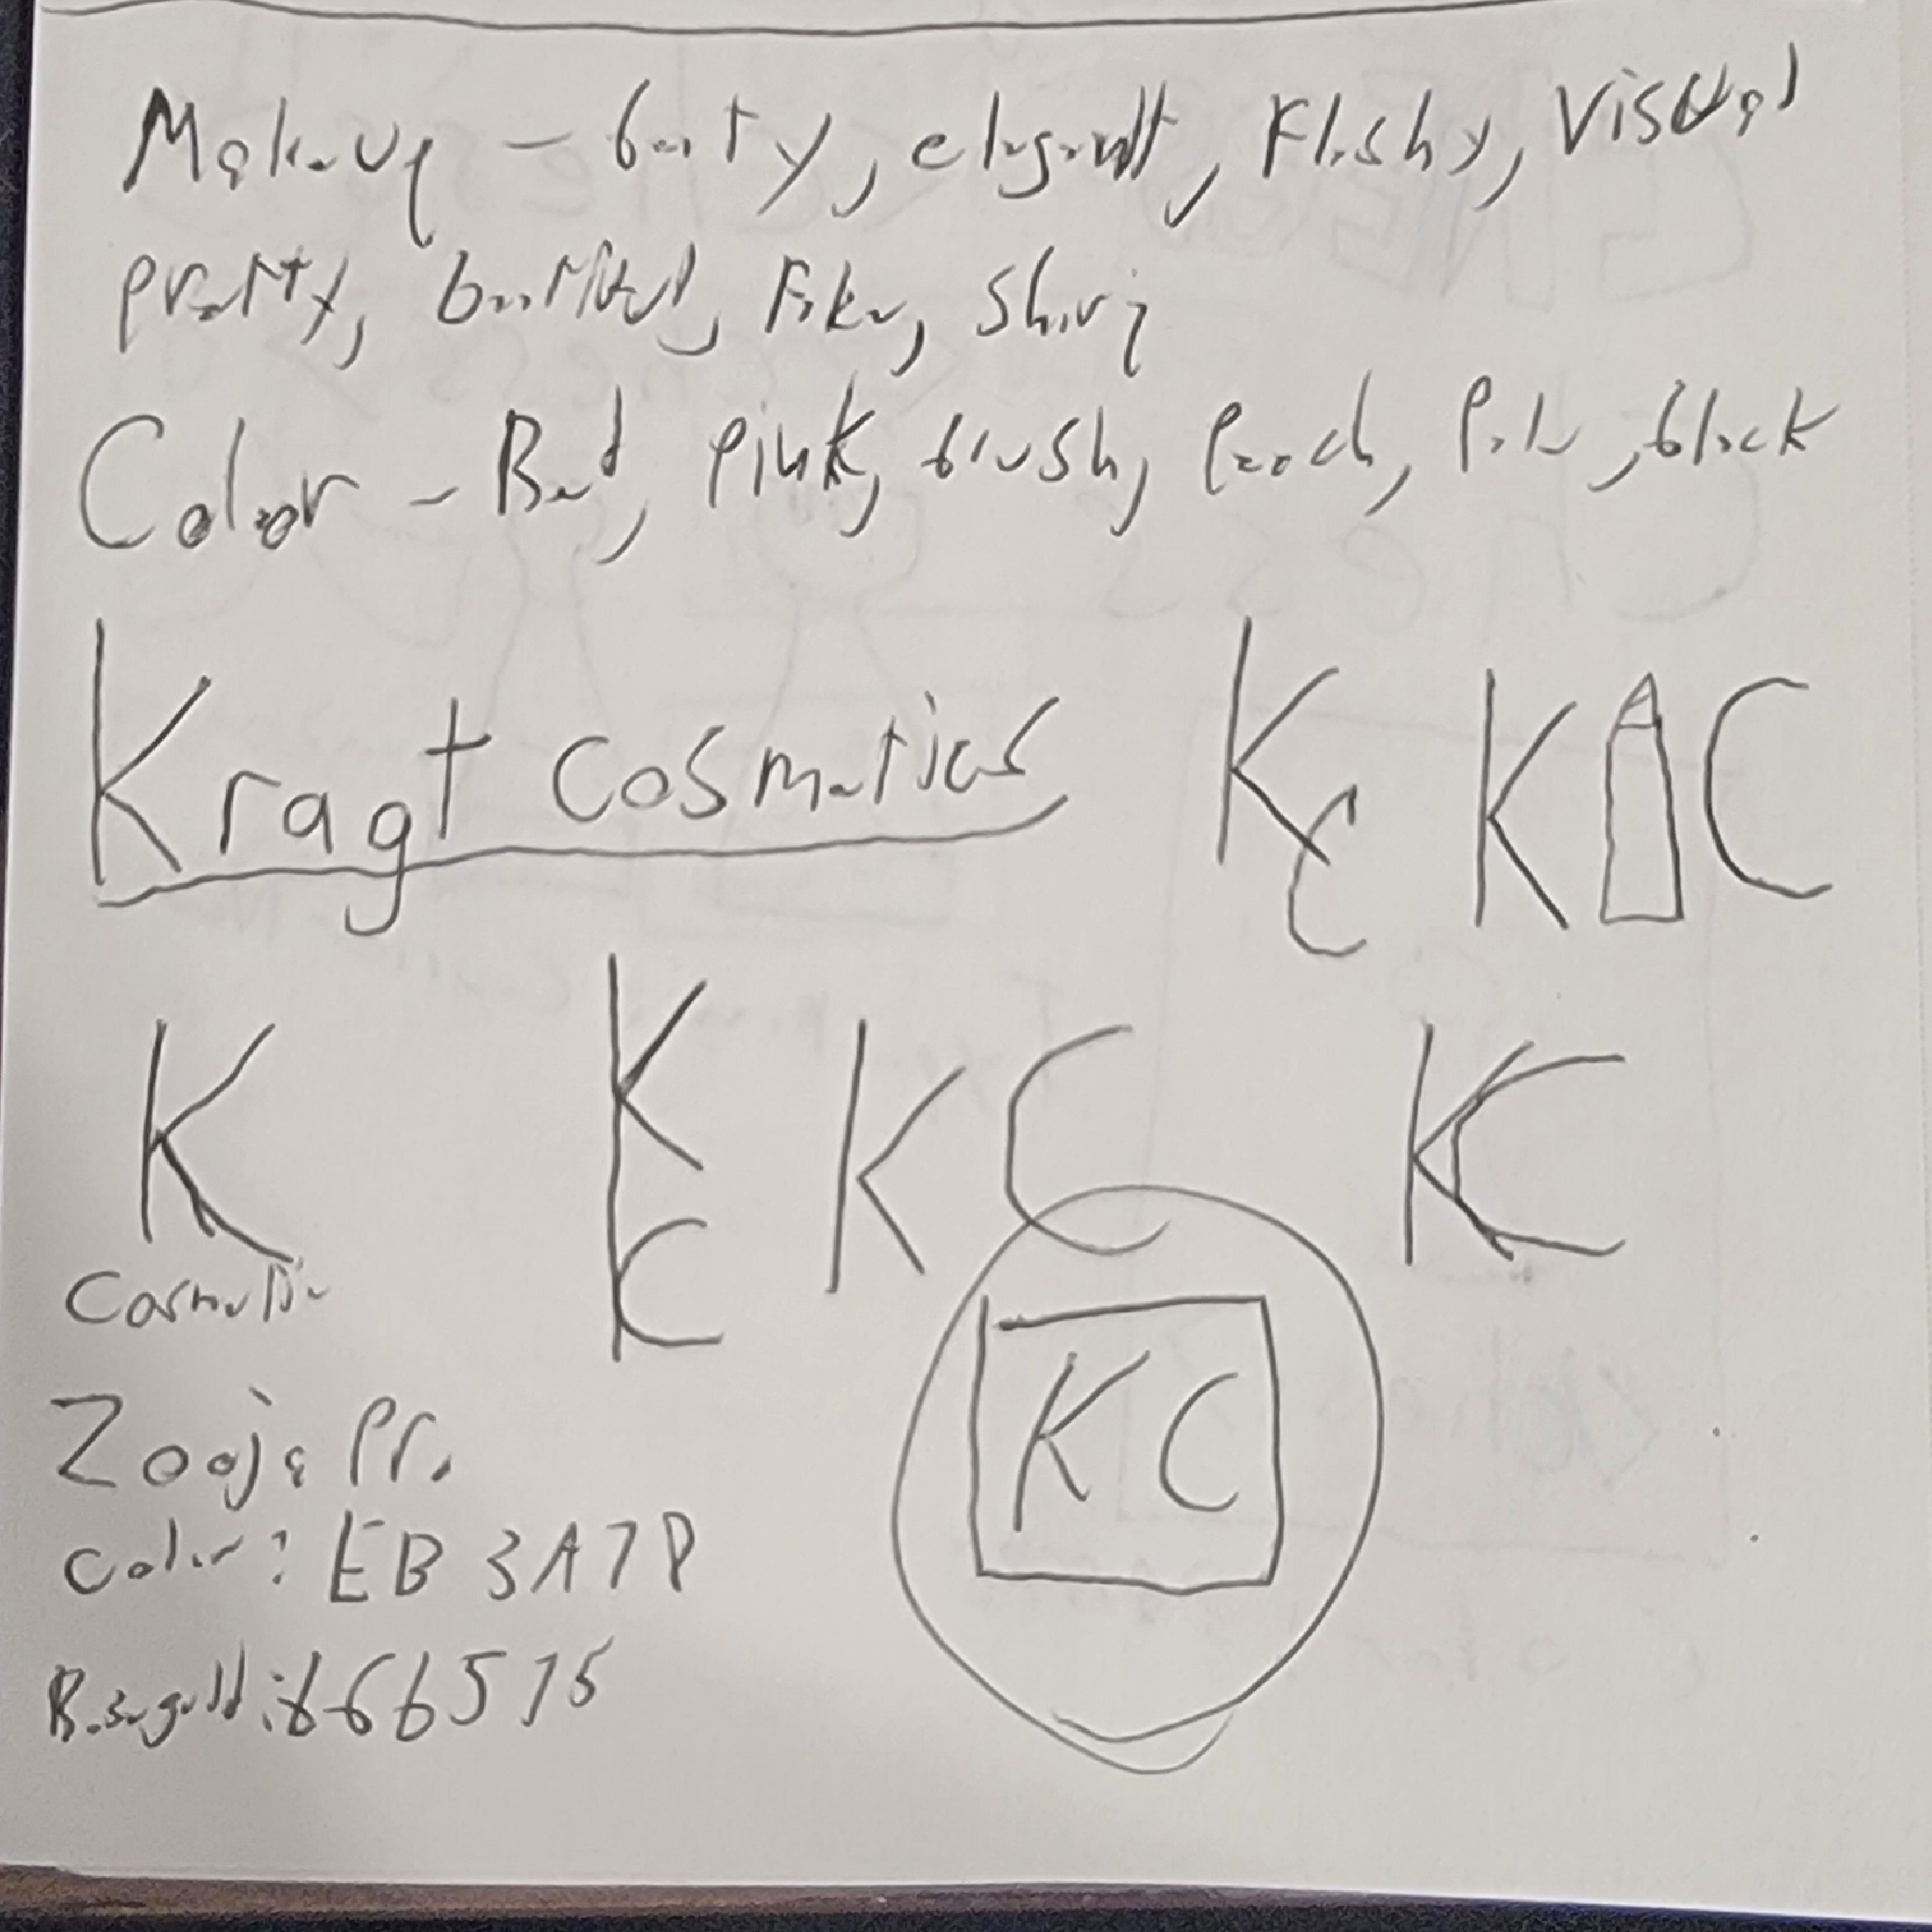 Makeup - beuty, elegant, Flashy, Visual
pretty, beutiful, Fake, Shiny
Color - Red, pink, blush, Peach, Pale, black
Kragt Cosmetics
KC
K C
K
Cosmetic
KC
KC
KC
KC
Zooja Pro
Color: EB3A78
Rosegold: B66575